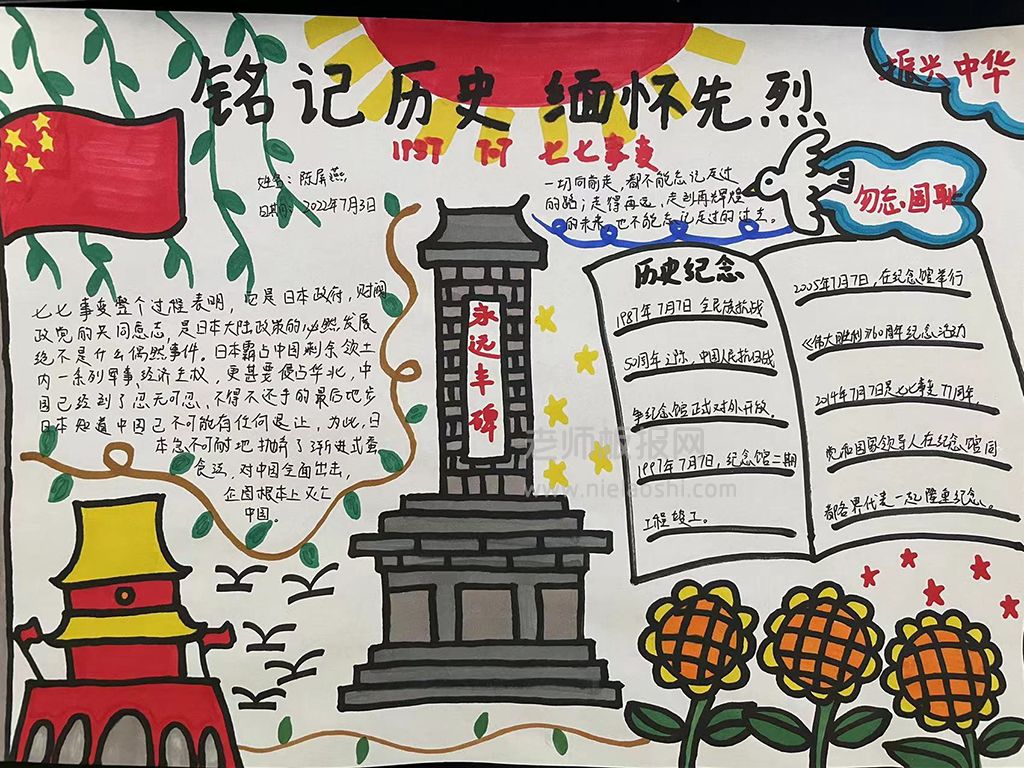 铭记历史 缅怀先烈
振兴中华
1937 7.7 七七事变
姓名：陈屏燕
日期：2022年7月3日
一切向前走，都不能忘记走过
的路；走得再远、走到再辉煌
的未来，也不能忘记走过的过去。
勿忘国耻
七七事变整个过程表明，它是日本政府，财阀
政党的共同意志，是日本大陆政策的必然发展
绝不是什么偶然事件。日本霸占中国剩余领土
内一系列军事、经济主权，更甚要侵占华北，中
国已经到了忍无可忍、不得不还手的最后地步
日本知道中国已不可能有任何退让，为此，日
本急不可耐地抛弃了渐进式蚕
食远，对中国全面出击，
企图根本上灭亡
中国。
永远丰碑
历史纪念
1987年7月7日 全民族抗战
50周年之际，中国人民抗日战
争纪念馆正式对外开放。
1997年7月7日，纪念馆二期
工程竣工。
2005年7月7日，在纪念馆举行
《伟大胜利》60周年纪念活动
2014年7月7日是七七事变77周年
党和国家领导人在纪念馆同
都各界代表一起隆重纪念。
老师板报网
www.nielaoshi.com